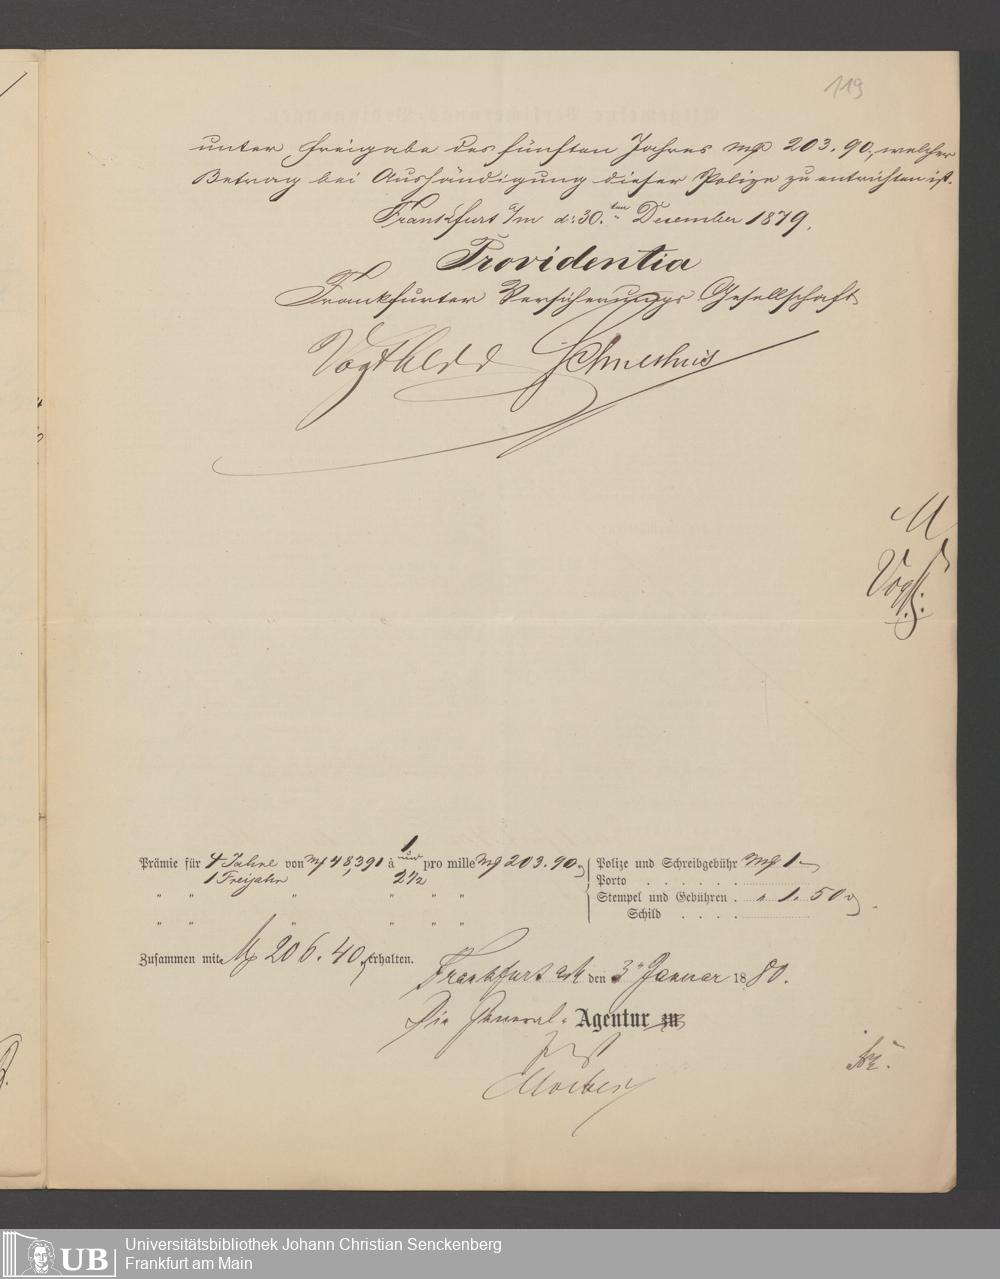 119
unter Freigabe des fünften Jahres Mk 203.90, welcher
Betrag bei Aushändigung dieser Polize zu entrichten ist.
Frankfurt a/m d. 30.ten Dezember 1879.
Providentia
Frankfurter Versicherungs Gesellschaft
Prämie für 4 Jahre von Mk 48,391 à 1 pro mille Mk 203.90
1 Freijahr 2 1/2
Polize und Schreibgebühr Mk 1 –
Porto . . . . . .
Stempel und Gebühren . „ 1. 50
Schild . . . .
Zusammen mit M 206.40, erhalten.
Frankfurt a/M den 3 Januar 1880.
Die General-Agentur zu
UB
Universitätsbibliothek Johann Christian Senckenberg
Frankfurt am Main